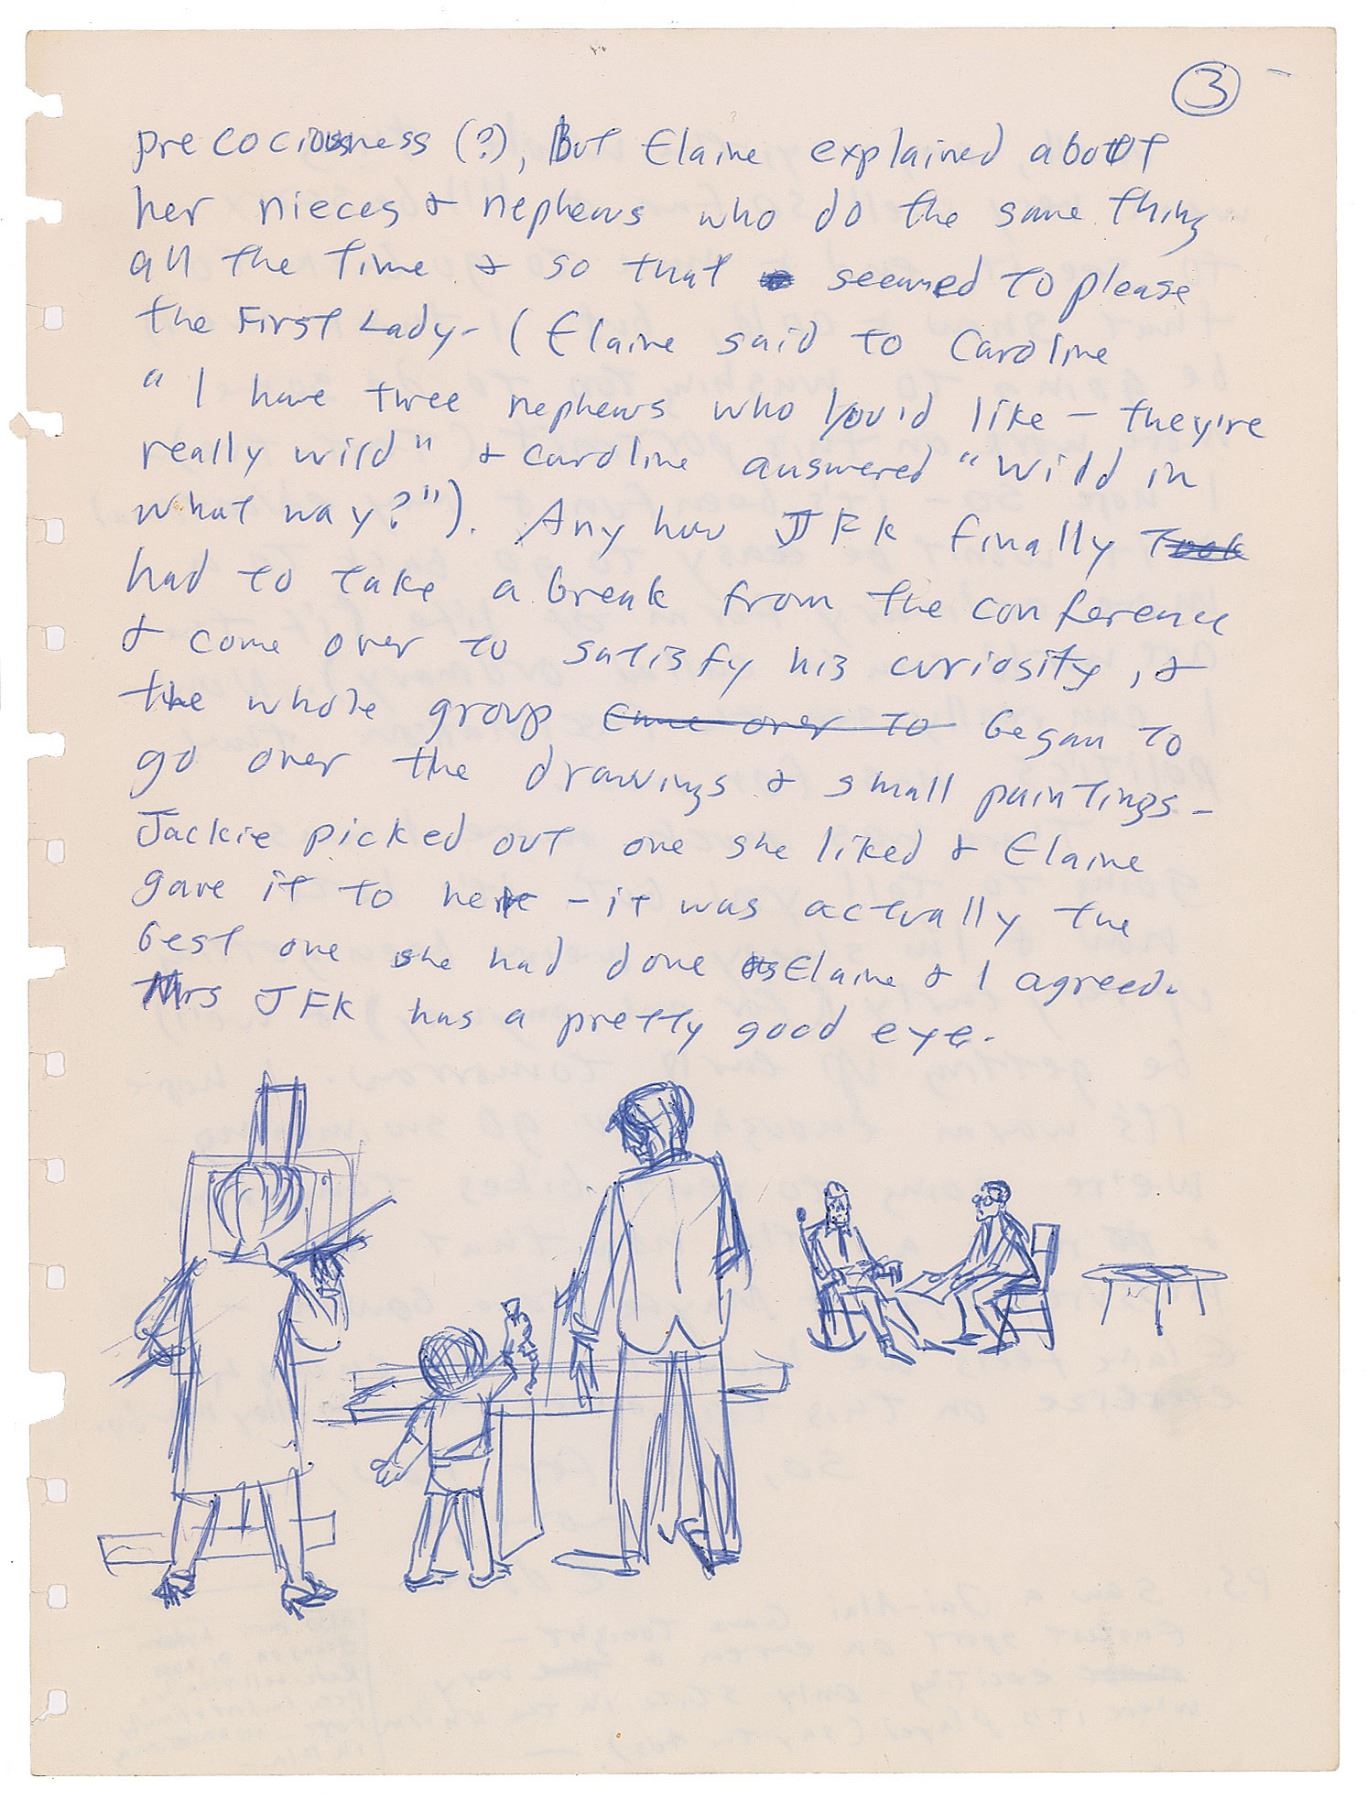 3
precociousness (?), But Elaine explained about
her nieces & nephews who do the same thing
all the time & so that seemed to please
the First Lady - ( Elaine said to Caroline
" I have three nephews who you'd like - they're
really wild " & Caroline answered " Wild in
what way? " ). Any how JFK finally took
had to take a break from the conference
& come over to satisfy his curiosity, &
the whole group came over to began to
go over the drawings & small paintings -
Jackie picked out one she liked & Elaine
gave it to her - it was actually the
best one she had done Elaine & I agreed.
Mrs JFK has a pretty good eye.